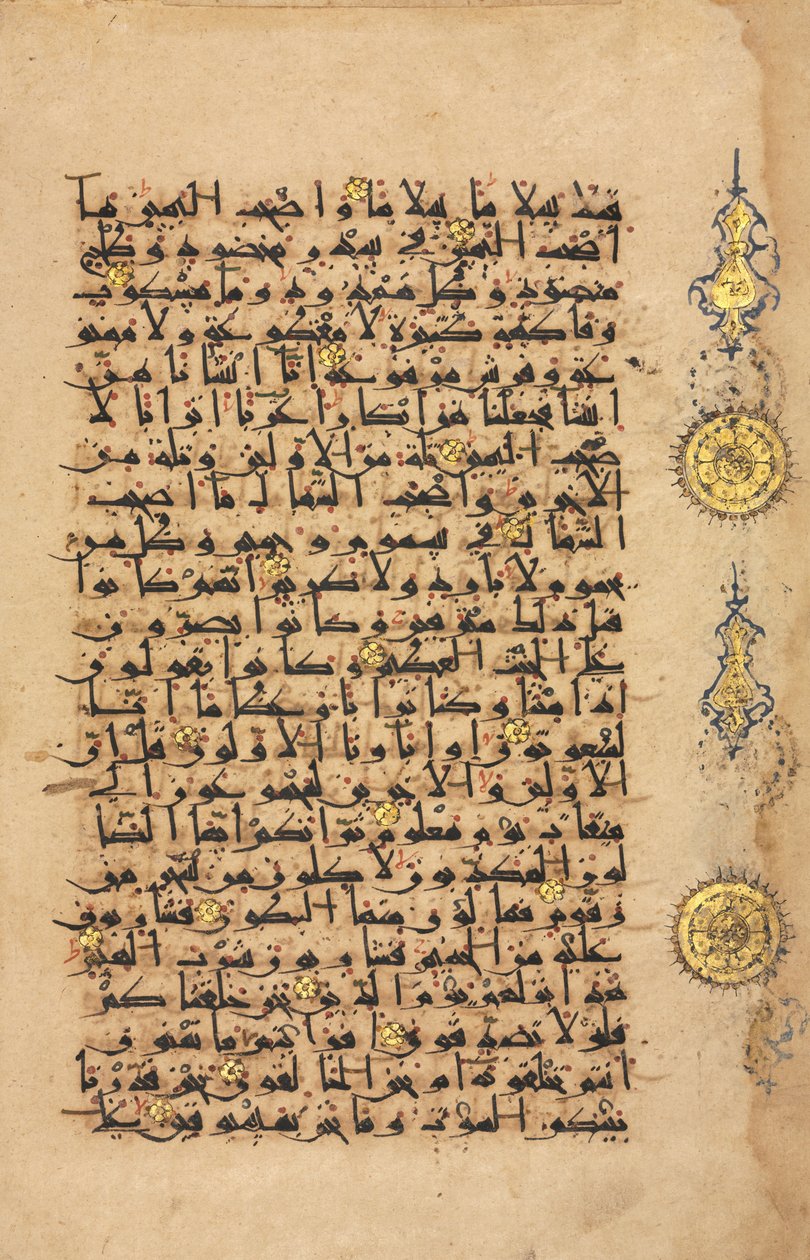 قيلا سلاما سلاما واصحب اليمين ما
اصحب اليمين في سدر مخضود وطلح
منضود وظل ممدود وما مسكوب
وفاكهة كثيرة لا مقطوعة ولا ممنو
عة وفرش مرفوعة انا انشانا هن
انشا فجعلنا هن ابكارا عربا اترابا لا
صحب اليمين ثلة من الاولين وثلة من
الاخرين واصحب الشمال ما اصحب
الشمال في سموم وحميم وظل من
يحموم لا بارد ولا كريم انهم كانوا
قبل ذلك مترفين وكانوا يصرون
على الحنث العظيم وكانوا يقولون
ائذا متنا وكنا ترابا وعظاما انا
لمبعوثون اواباونا الاولون قل ان
الاولين والاخرين لمجموعون الى
ميقات يوم معلوم ثم انكم ايها الضا
لون المكذبون لاكلون من شجر من
زقوم فمالؤن منها البطون فشاربون
عليه من الحميم فشاربون شرب الهيم
هذا نزلهم يوم الدين نحن خلقناكم
فلولا تصدقون افرايتم ما تمنون
انتم تخلقونه ام نحن الخالقون نحن قدرنا
بينكم الموت وما نحن بمسبوقين على